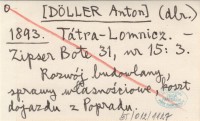 [DÖLLER Anton] (dr.)
1893. Tátra-Lomnicz. –
Zipser Bote 31, nr 15: 3.
Rozwój budowlany,
sprawy własnościowe, koszt
dojazdu z Popradu.